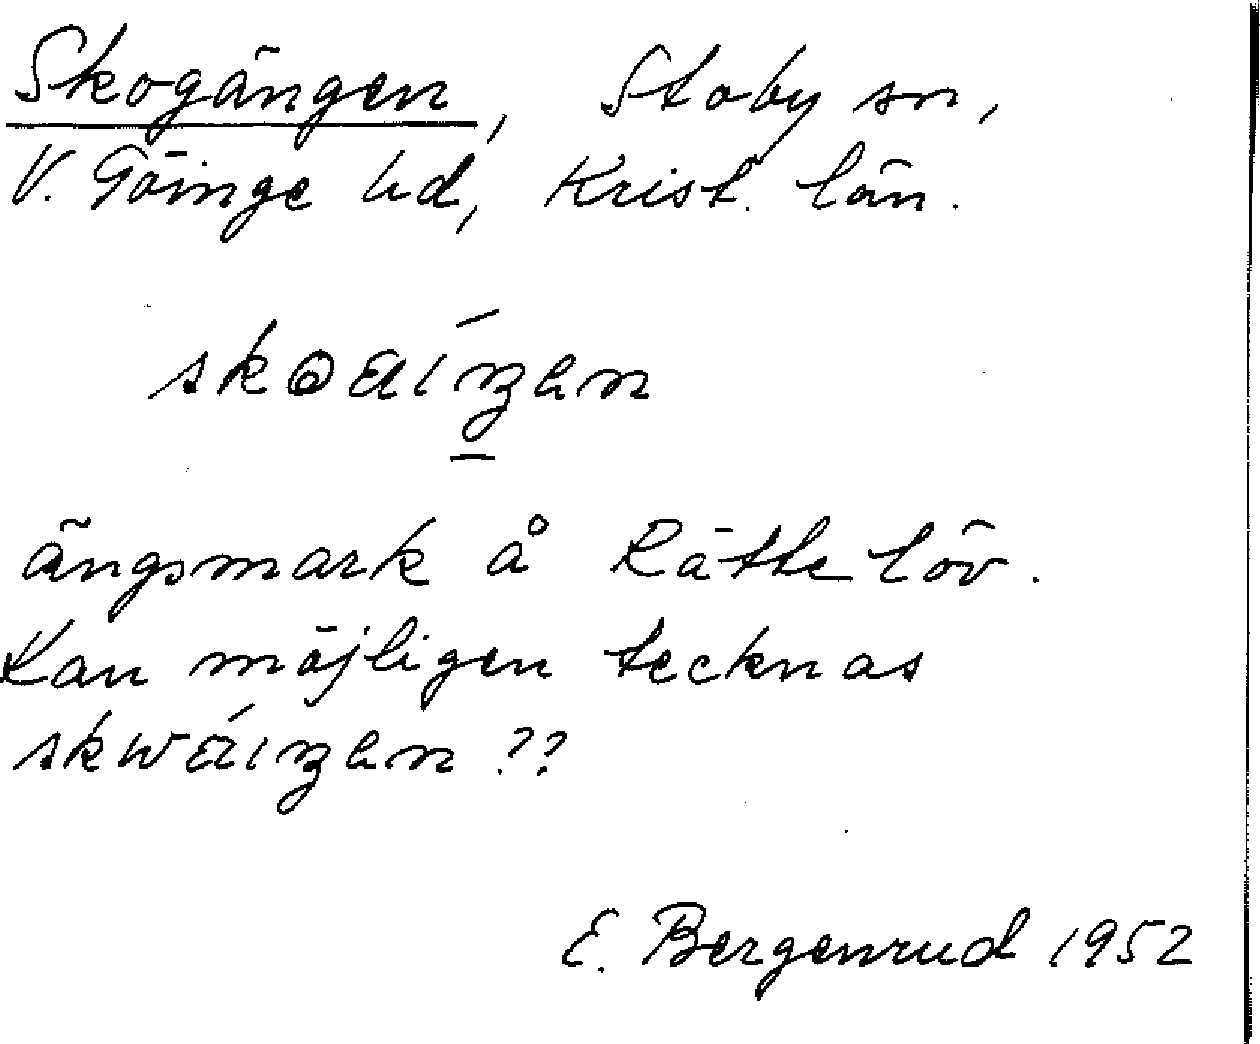 Skogängen, Stoby sn,
V. Göinge hd, Krist. län.
skoaiŋen
ängsmark å Rättelöv.
Kan möjligen tecknas
skwaiŋen ??
E. Bergenrud 1952